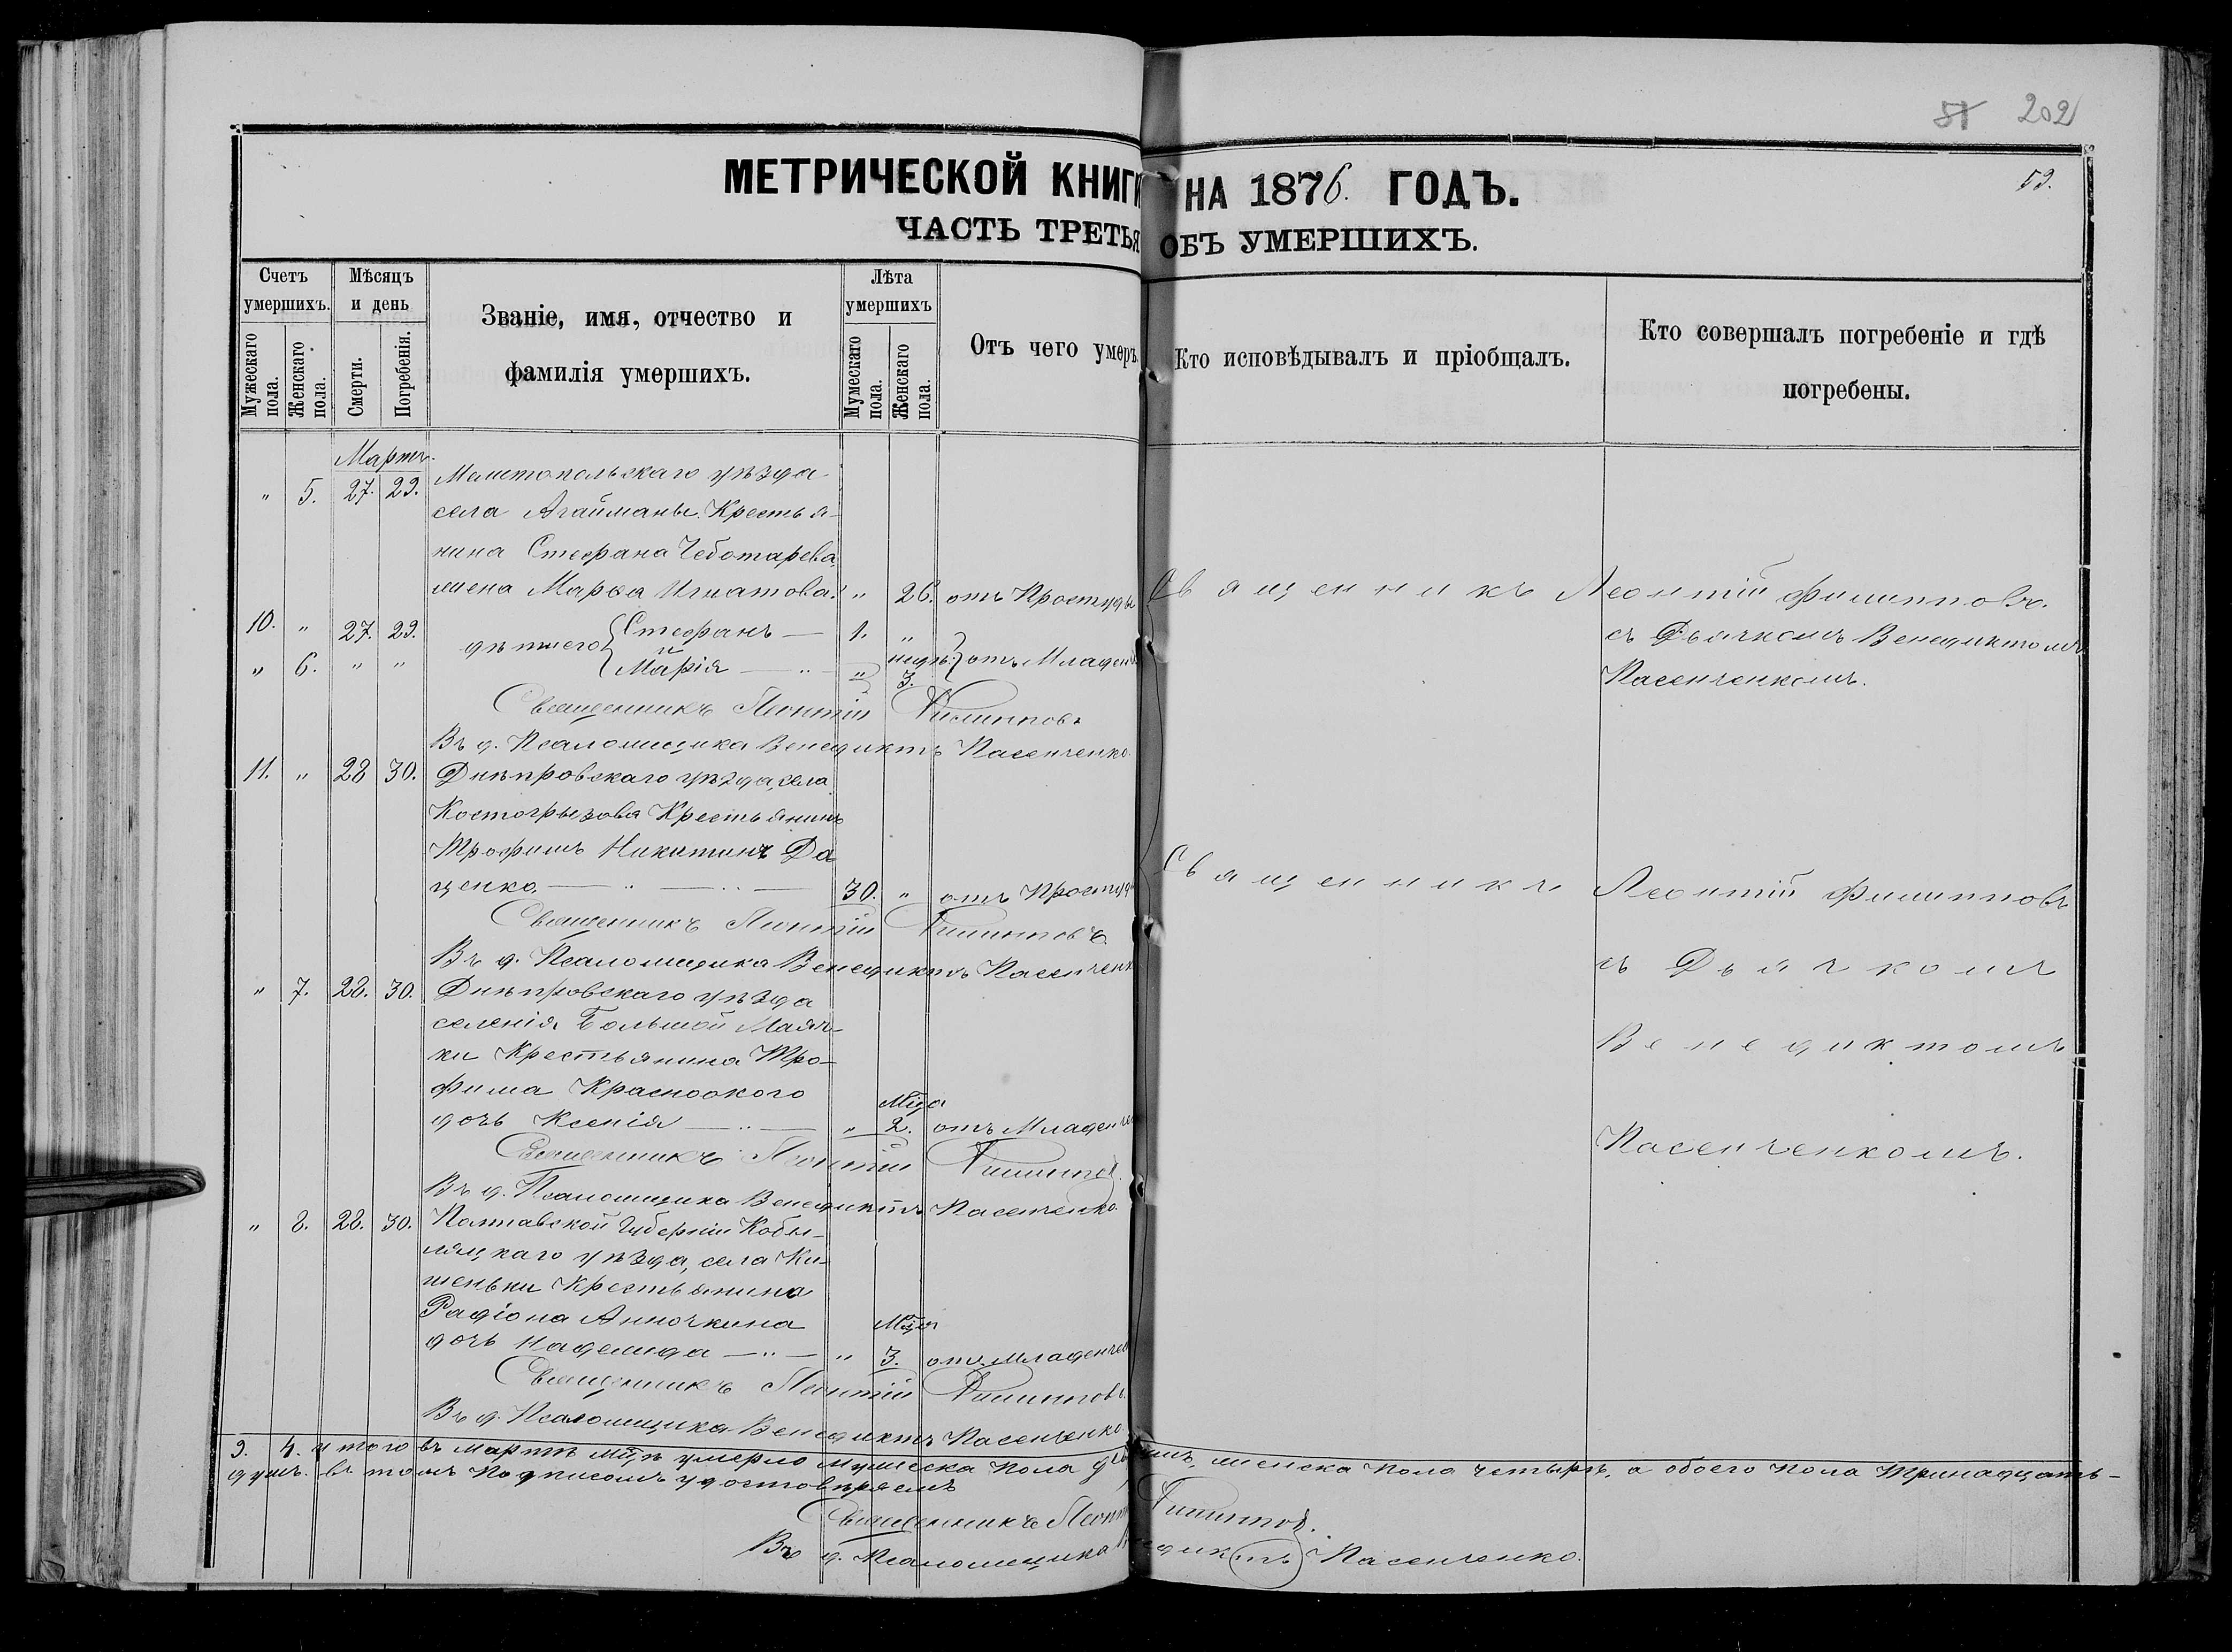 51 202
МЕТРИЧЕСКОЙ КНИГИ НА 1876. ГОДЪ.
53.
ЧАСТЬ ТРЕТЬЯ ОБЪ УМЕРШИХЪ.
Счетъ умершихъ.
Мужескаго пола.
Женскаго пола.
Мѣсяцъ и день
Смерти.
Погребенія.
Званіе, имя, отчество и
фамилія умершихъ.
Лѣта умершихъ
Мужескаго пола.
Женскаго пола.
Отъ чего умеръ.
Кто исповѣдывалъ и пріобщалъ.
Кто совершалъ погребеніе и гдѣ
погребены.
Мартъ.
" 5. 27. 29. Мелитопольскаго уѣзда
села Агайманы. Крестья-
нина Стефана Чеботарева,
жена Марфа Игнатова. " 26. отъ Простуды Священникъ Леонтій Филипповъ.
10. " 27. 29. дѣти его Стефанъ — 1. " съ Дьячкомъ Венедиктомъ
" 6. " " и Марія — " — " недѣ: 3. отъ Младен Пасенченкомъ.
Священникъ Леонтій Филипповъ
Въ д. Псаломщика Венедиктъ Пасенченко.
11. " 28 30. Днѣпровскаго уѣзда, села
Костогрызова Крестьянинъ
Трофимъ Никитинъ Да
ценко. — " — " — 30. " отъ Простуд Священникъ Леонтій Филипповъ
Священникъ Леонтій Филипповъ.
Въ д. Псаломщика Венедиктъ Пасенченк съ Дьячкомъ
" 7. 28. 30. Днѣпровскаго уѣзда
селенія Большой Маяч- Венедиктомъ
ки Крестьянина Тро-
фима Красноокого
дочь Ксенія — " — " Мѣца 2. отъ Младенче Пасенченкомъ.
Священникъ Леонтій Филиппов.
Въ д. Псаломщика Венедиктъ Пасенченко.
" 8. 28. 30. Полтавской Губерніи Кобы-
ляцкаго уѣзда, села Ки-
шеньки Крестьянина
Радіона Анночкина
дочь Надежда — " — " Мѣця 3. отъ Младенчев
Священникъ Леонтій Филипповъ.
Въ д. Псаломщика Венедиктъ Пасенченко.
9. 4. итого въ мартѣ мцѣ умерло мужеска пола женска пола четыре, а обоего пола Тринадцать-
душъ. въ томъ подписомъ удостовѣряемъ
Священникъ Леонт Филиппов.
Въ д. Псаломщика Венедиктъ Пасенченко.